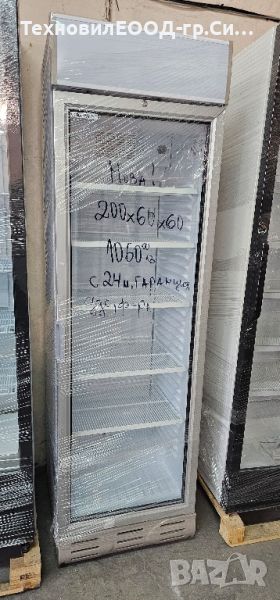 ТехновилЕООД-гр.Си...
Нова!
200x60x60
1050
с 24м. гаранция
BAZAR